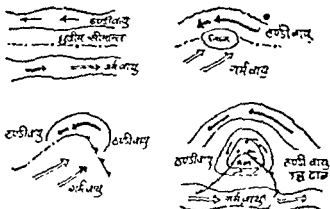 ठण्डी वायु
ध्रुवीय सीमान्त
गर्म वायु
ठण्डी वायु
निम्न
गर्म वायु
ठण्डी वायु
ठण्डी वायु
गर्म वायु
ठण्डी वायु
ठण्डी वायु
गर्म वायु